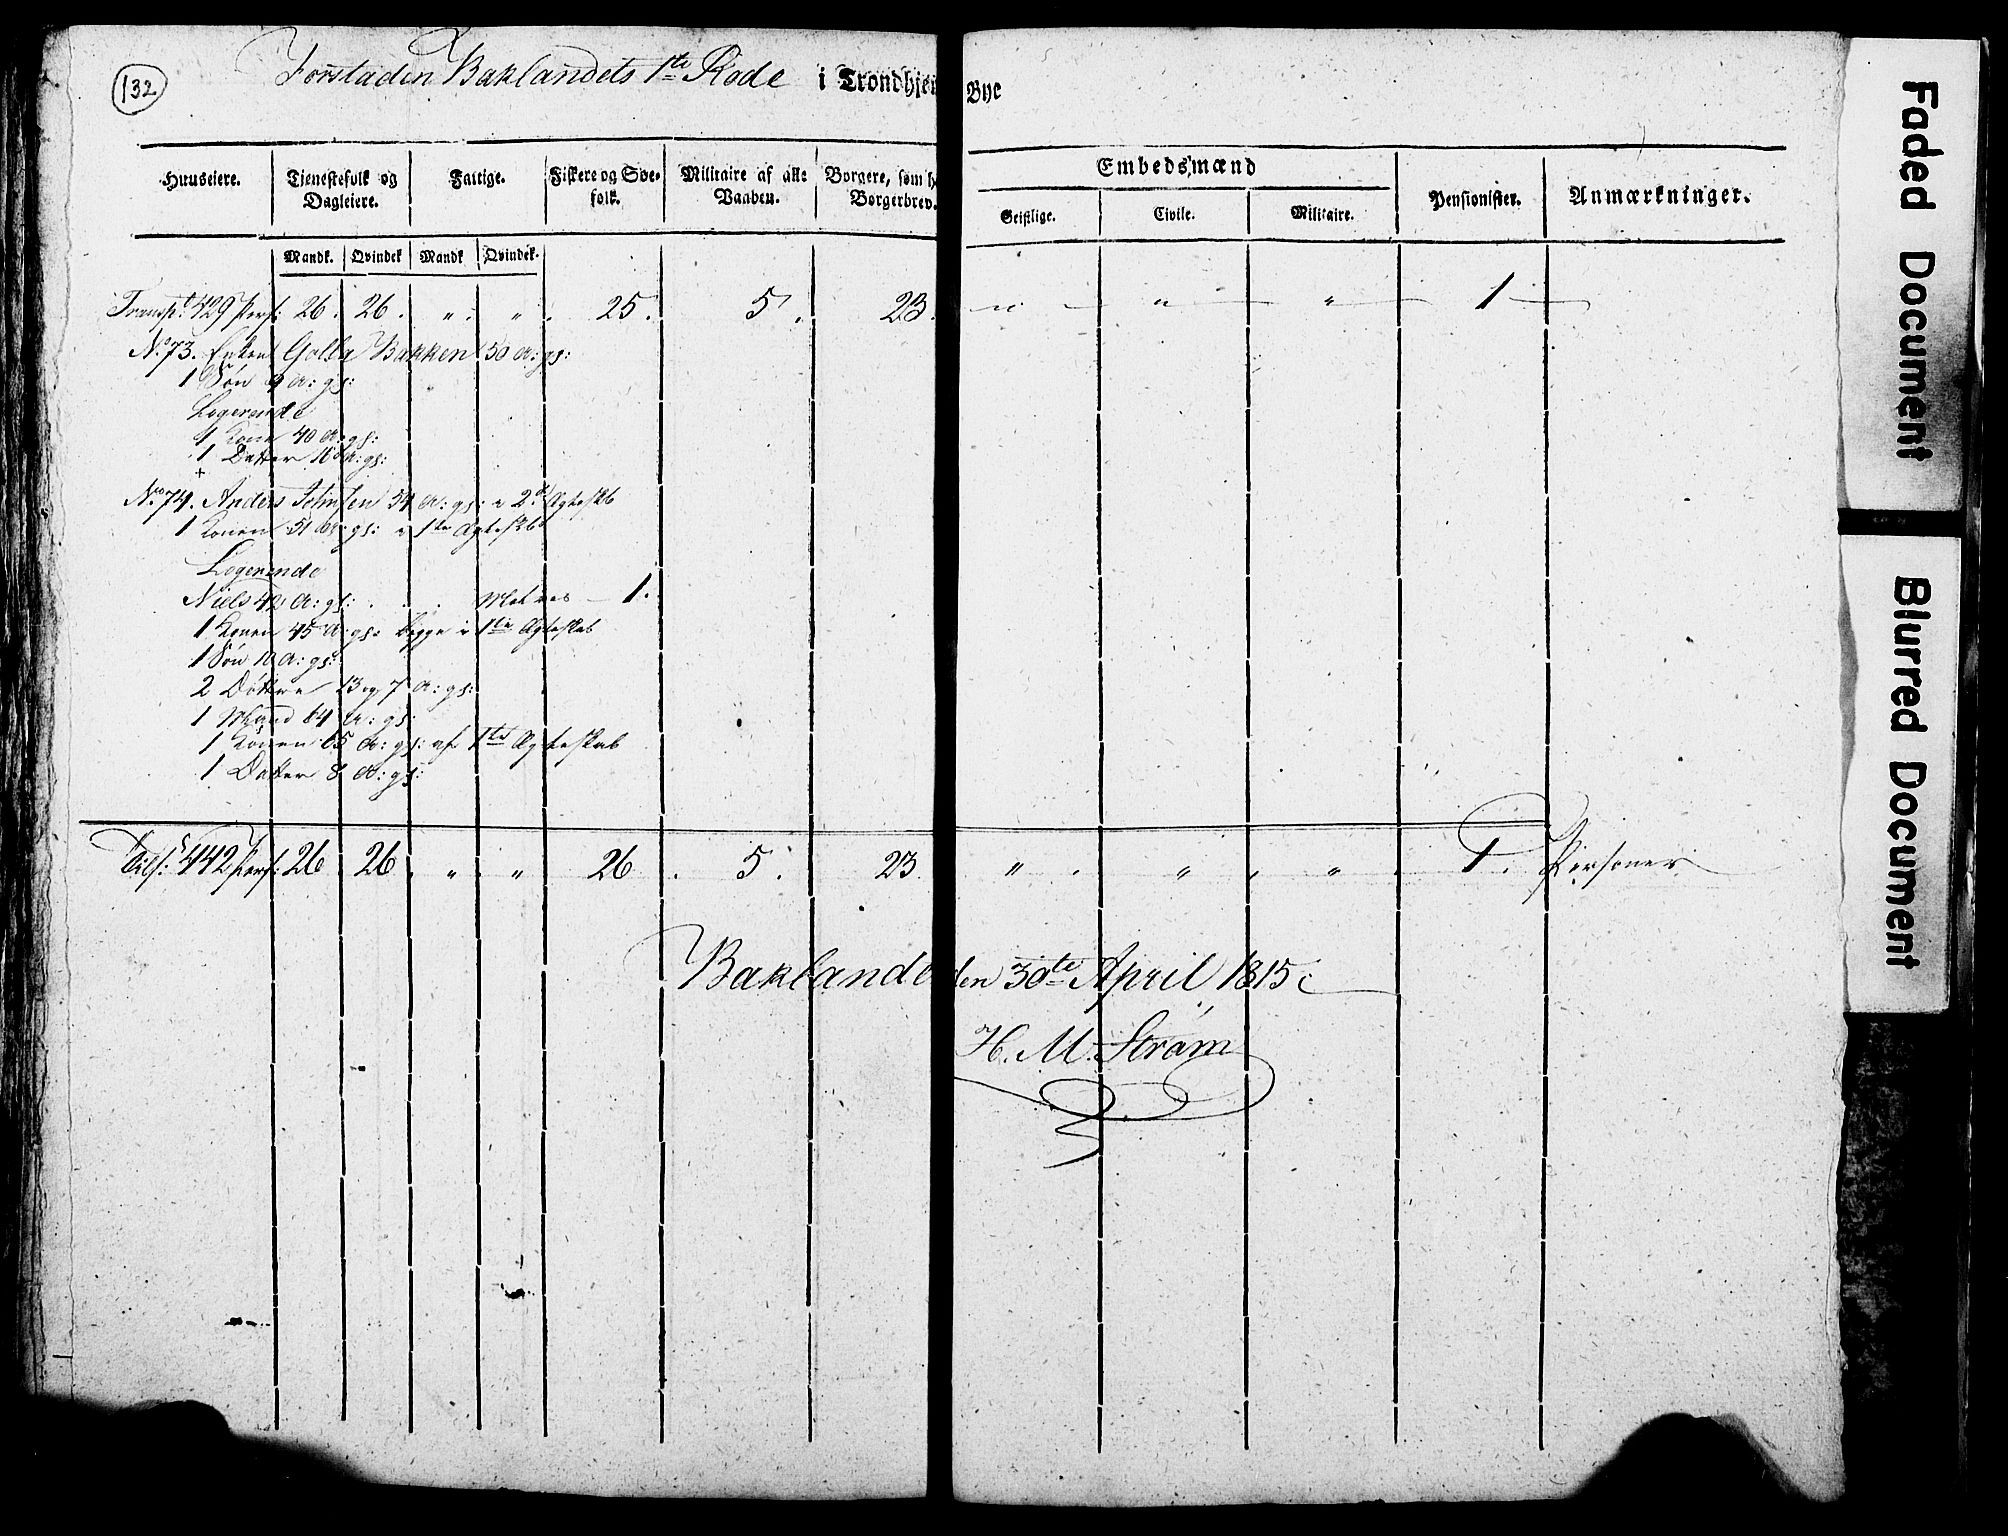 132
Forstaden Baklandets 1ste Rode i Trondhjem Bye
Huuseiere.
Tjenestefolk og Dagleiere.
Fattige.
Fiskere og Søefolk.
Militaire af alle Vaaben.
Borgere, som h
Borgerbrev.
Embedsmænd
Geistlige.
Civile.
Militaire.
Pensionister.
Anmærkninger.
Mandk. Qvindek Mandk Qvindek.
Transpt: 429 Pers: 26. 26. " " 25. 5. 23. " " " 1
No 73. Enken Golla Bakken 50 A: gl:
1 Søn 9 A: gl:
Logerende
1 Kone 40 A: gl:
1 Datter A: gl:
+
No 74. Anders Johnsen 54 A: gl: i 2det Ægteskb
1 Konen 51 A: gl: i 1ste Ægteskb
Logerende
Niels 42 A: gl: . . . Matros 1.
1 Konen 45 A: gl: begge i 1ste Ægteskab
1 Søn 10 A: gl:
2 Døttre 13 og 7 A: gl:
1 Mand 64 A: gl:
1 Konen 65 A: gl: af 1ste Ægteskab
1 Datter 8 A: gl:
Tils: 442 Pers: 26 26 " " 26 5. 23. " " " 1. Personer
Baklandet den 30te April 1815
H. M. Strøm
Faded Document
Blurred Document